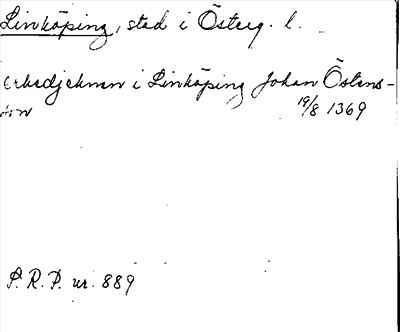 Linköping, stad i Österg. l.
Erkedjeknen i Linköping Johan Östens-
son 19/8 1369
S. R. P. nr. 889